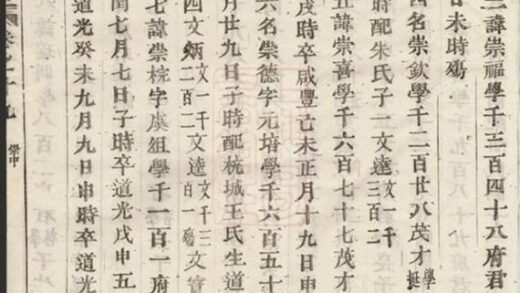 三諱崇福學千三百四十八府君
廿未時殤
四名崇欽學千二百廿八茂才學挺
時配朱氏子一文達文一千三百二
五諱崇喜學千六百七十七茂才
戌時卒咸豐己未正月十九日申
六名崇德字元培學千六百五十
月廿九日子時配杭城王氏生道
四文炳文一千二百二文達文千三百一殤文
七諱崇梡字虞俎學千一百一府
閏七月七日子時卒道光戊申五
道光癸未九月九日申時卒道光
崇中